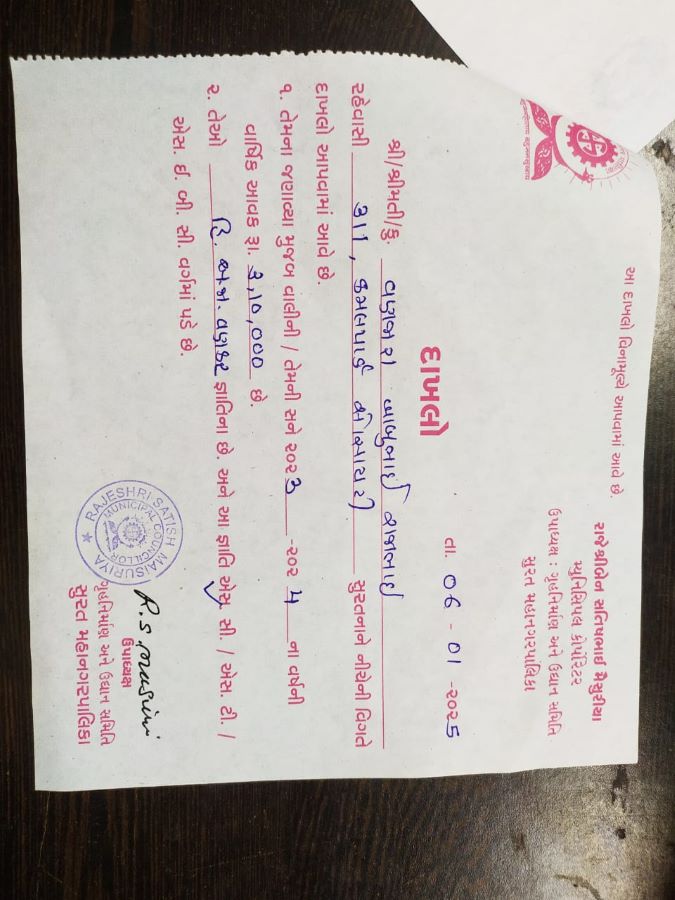 આ દાખલો વિનામૂલ્યે આપવામાં આવે છે.
રાજેશ્રીબેન સતિષભાઈ મૈસુરીયા
મ્યુનિસિપલ કોર્પોરેટર
ઉપાધ્યક્ષ : ગૃહનિર્માણ અને ઉદ્યાન સમિતિ
સુરત મહાનગરપાલિકા
તા. 06 - 01 -૨૦૨5
દાખલો
શ્રી/શ્રીમતી/કુ. વણજારા બાબુભાઈ
રહેવાસી 311, કમલપાર્ક સુરતનાને નીચેની વિગતે
દાખલો આપવામાં આવે છે.
૧. તેમના જણાવ્યા મુજબ વાલીની / તેમની સને ૨૦૨3 -૨૦૨ 4 ના વર્ષની
વાર્ષિક આવક રૂા. 3,10,000 છે.
૨. તેઓ હિ. વણકર જ્ઞાતિના છે. અને આ જ્ઞાતિ એસ. સી. / એસ. ટી. /
એસ. ઈ. બી. સી. વર્ગમાં પડે છે.
RAJESHRI SATISH MAISURIYA
MUNICIPAL COUNCILLOR
R.S.Maisuri
ઉપાધ્યક્ષ
ગૃહનિર્માણ અને ઉદ્યાન સમિતિ
સુરત મહાનગરપાલિકા